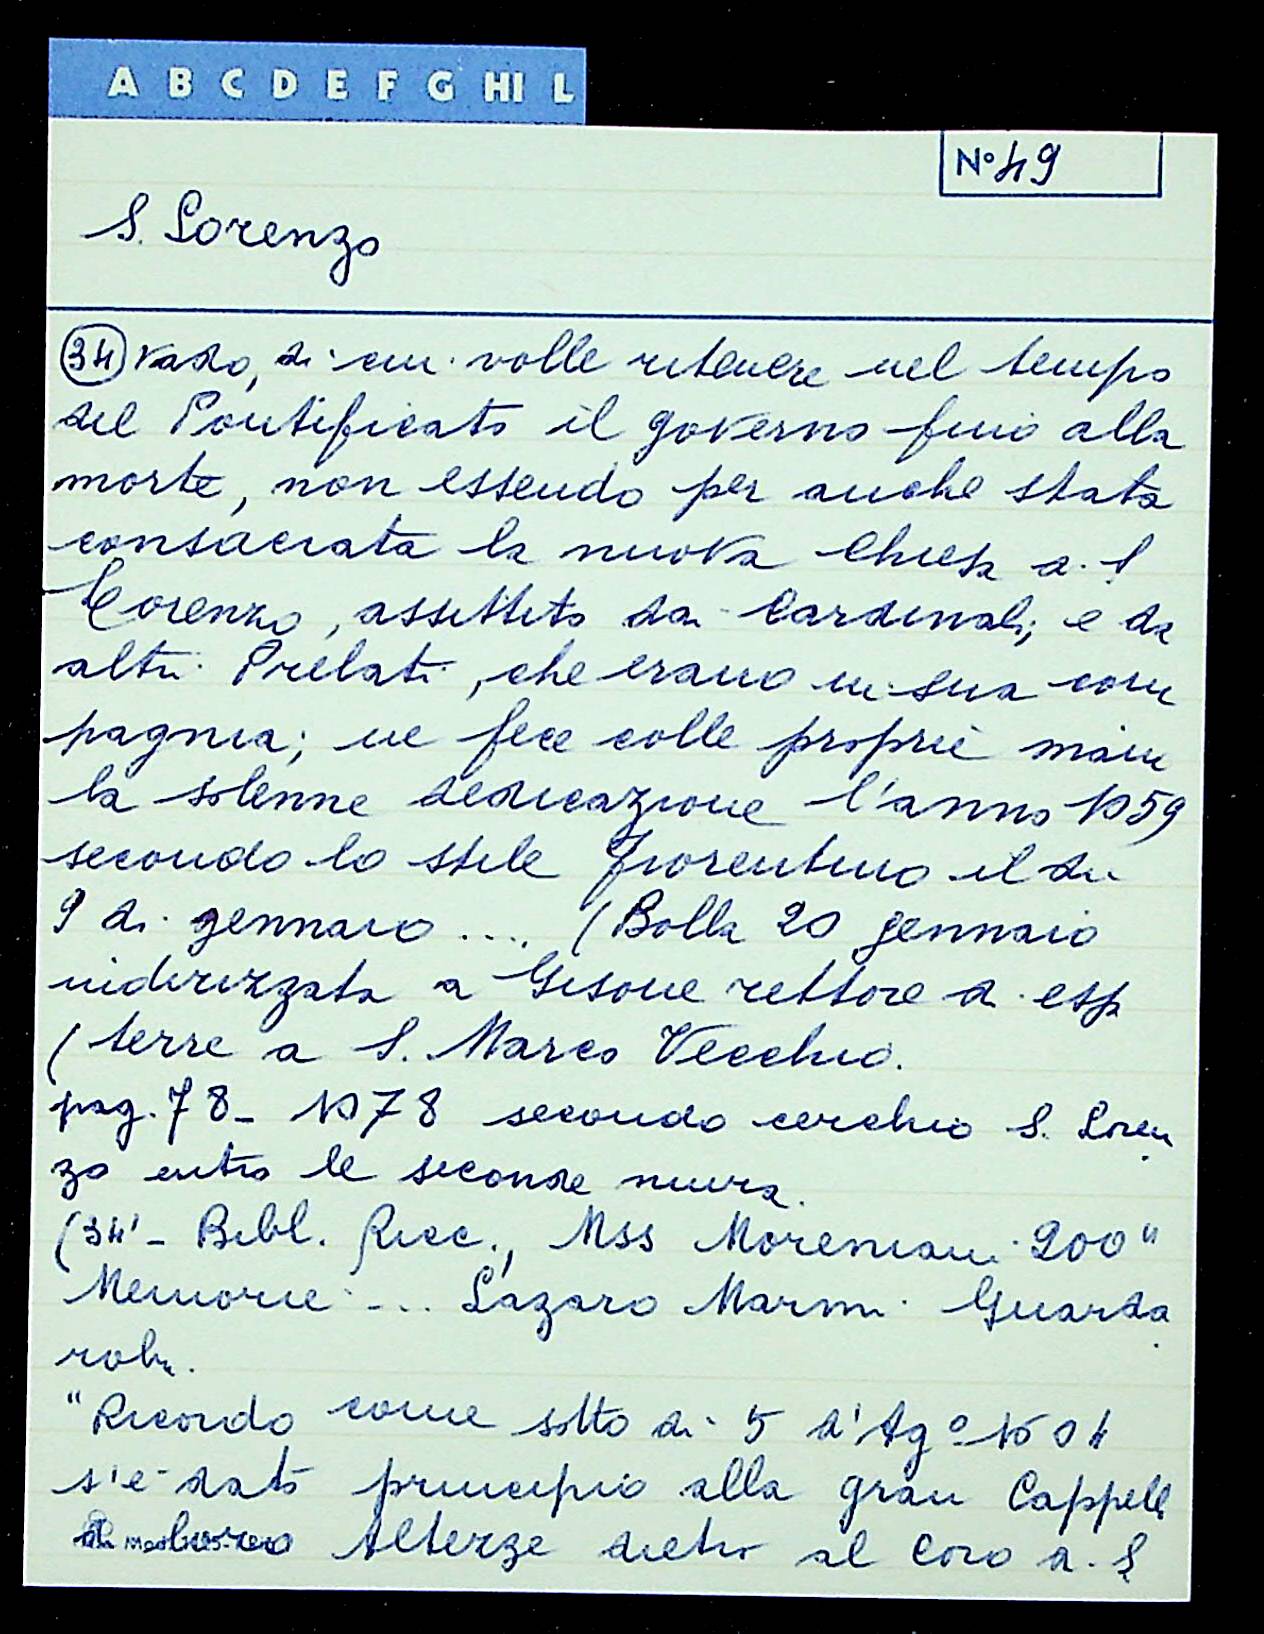 A B C D E F G HI L
N° 49
S. Lorenzo
(34) vado, di cui volle ritenere nel tempo
del Pontificato il governo fino alla
morte, non essendo per anche stata
consacrata la nuova Chiesa di S
Lorenzo, assistito dai Cardinali, e da
altri Prelati, che erano in sua com
pagnia; ne fece colle proprie mani
la solenne dedicazione l'anno 1059
secondo lo stile fiorentino il dì
9 di gennaio .... (Bolla 20 gennaio
indirizzata a Gisone rettore di esp
(terre a S. Marco Vecchio.
pag. 78 - 1078 secondo cerchio S. Loren
zo entro le seconde mura.
(34' - Bibl. Ricc., Mss Moreniani 200"
Memorie ... Lazaro Marmi Guarda
roba.
"Ricordo come sotto di 5 d'Ag° 1604
s'è dato principio alla gran Cappell
Altezze dietro al Coro di S